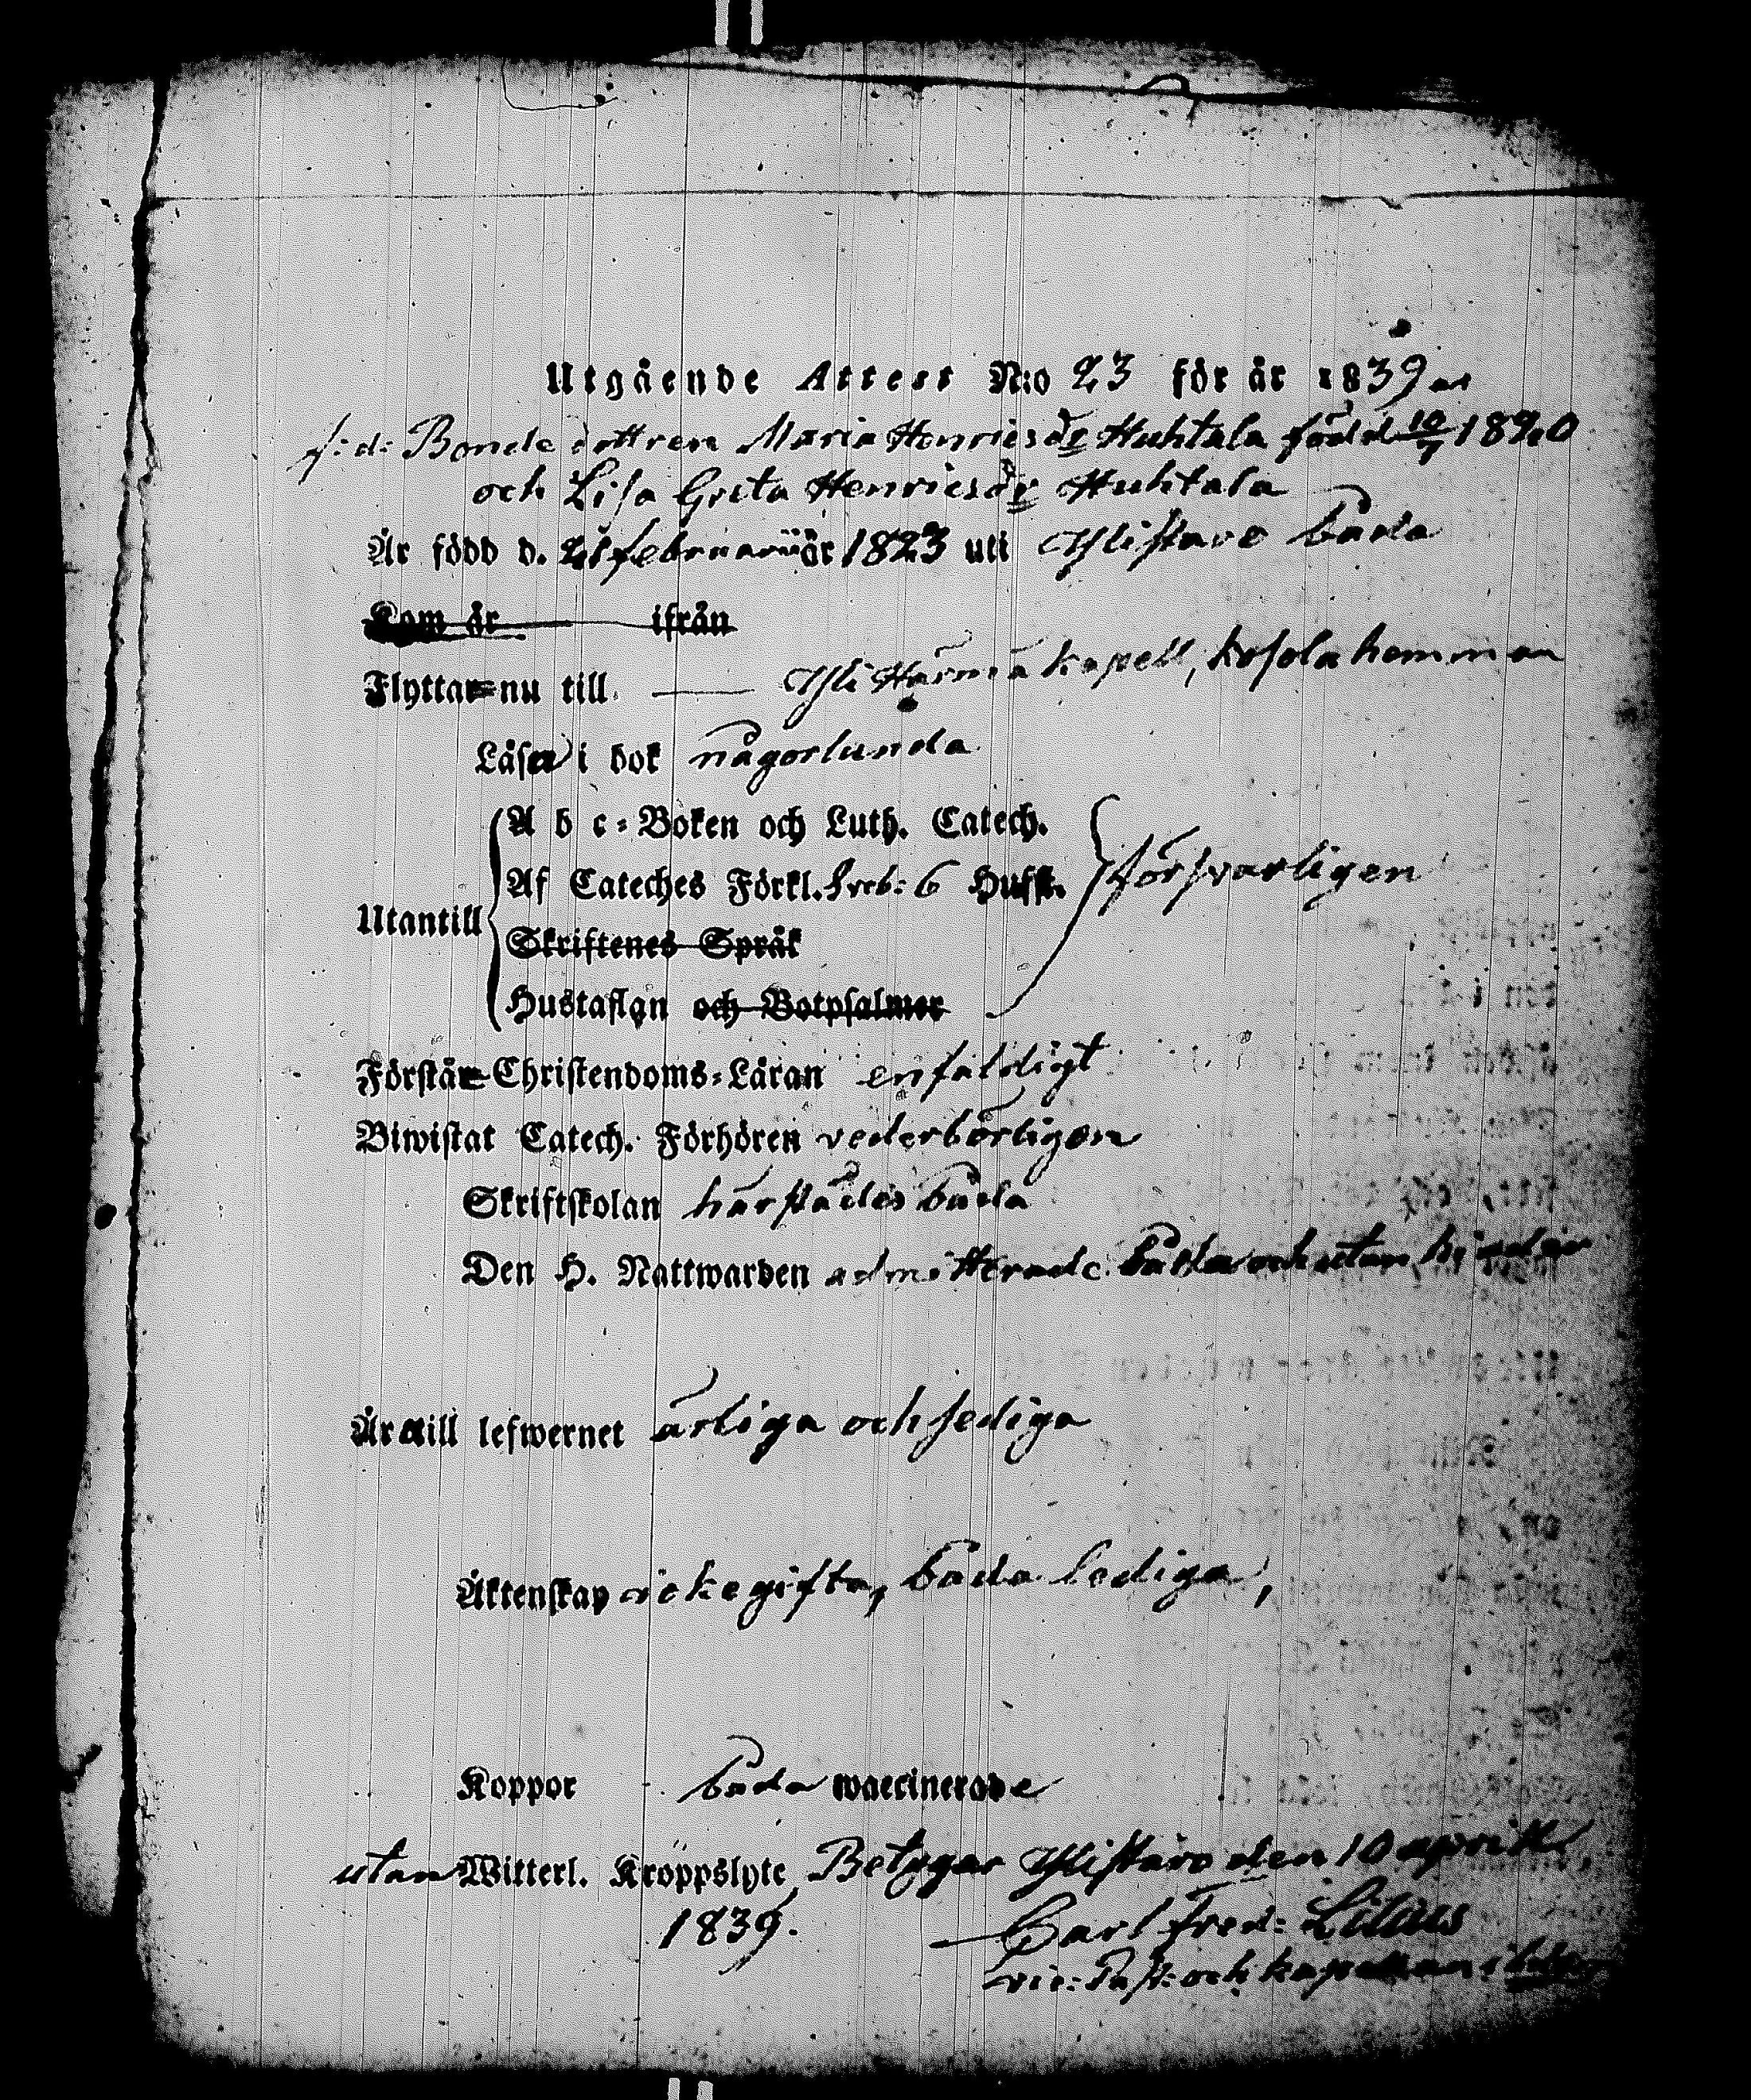 Utgående Attest N:o 23 för år 1839
f: d: Bonde dottren Maria Henricsdr Huhtala född 10/7 1820
och Lisa Greta Henricsdr Huhtala
Är född d. 21 februarii år 1823 uti Ylistaro båda
Kom år ifrån
Flytta nu till Yli Härmä kapell, kosola hemman
Läsa i bok någorlunda
A b c-Boken och Luth. Catech.
Af Cateches Förkl. Sveb: 6 Hufst. försvarligen
Utantill
Skriftenes Språk
Hustaflan och Botpsalmer
Förstå Christendoms-Läran enfaldigt
Biwistat Catech. Förhören vederbörligen
Skriftskolan härstädes båda
Den H. Nattwarden admitterade båda och utan hinder
Ära till lefwernet ärliga och sediga
Äktenskap icke gifta, båda lediga,
Koppor båda waccinerade
utan Witterl. Kroppslyte Betygar Ylistaro den 10 april
1839. Carl Fred: Lilius
vic: Past: och kapellan ibdm